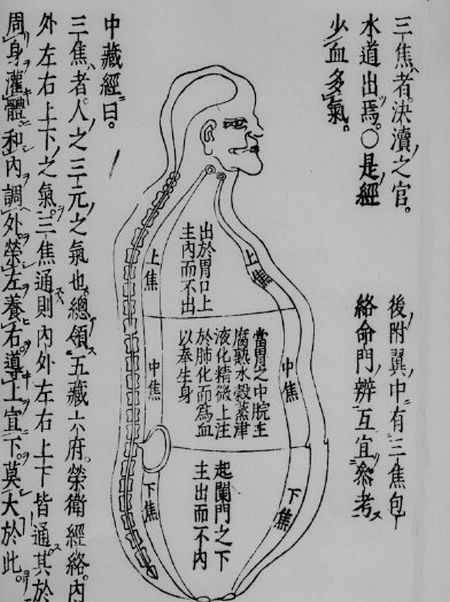 三焦者決瀆之官。
水道出焉。〇是經
少血多氣。
後附翼中有三焦包
絡命門辨互宜參考
上焦
上焦
出於胃口上
主內而不出
中焦
中焦
當胃之中脘主
腐熟水穀蒸津
液化精微上注
於肺化而為血
以奉生身
下焦
下焦
起闌門之下
主出而不內
中藏經曰。
三焦者人之三元之氣也總領五藏六府榮衛經絡內
外左右上下之氣三焦通則內外左右上下皆通其於
周身灌體和內調外榮左養右導上宜下莫大於此。